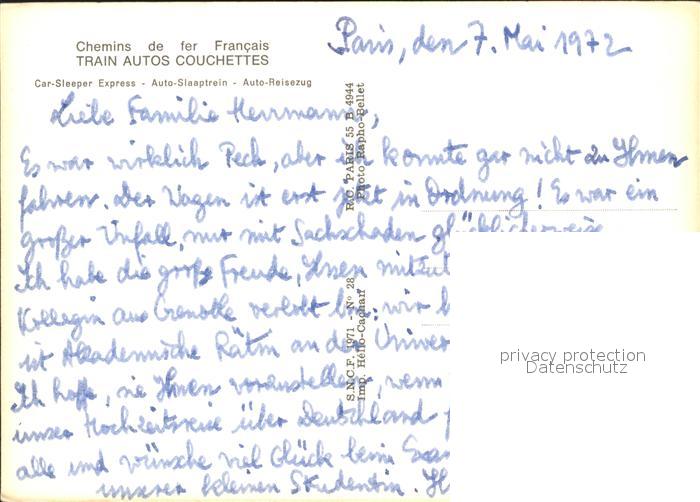 Chemins de fer Français
TRAIN AUTOS COUCHETTES
Car-Sleeper Express - Auto-Slaaptrein - Auto-Reisezug
Paris, den 7. Mai 1972
Liebe Familie Herrmann,
Es war wirklich Pech, aber ich konnte gar nicht zu Ihnen
fahren. Der Wagen ist erst jetzt in Ordnung! Es war ein
großer Unfall, nur mit Sachschaden glücklicherweise
Ich habe die große Freude, Ihnen
Kollegin aus Grenoble verlobt bin: wir
ist Akademische Rätin an der
Ich hoffe, sie Ihnen vorzustellen, wenn
unser Hochzeitsreise über Deutschland
alle und wünsche viel Glück beim
unserer kleinen Studentin.
R.C. PARIS 55 B 4944
Photo Rapho-Bellet
S.N.C.F. 1971 - N° 28
Imp. Hélio-Cachan
privacy protection
Datenschutz